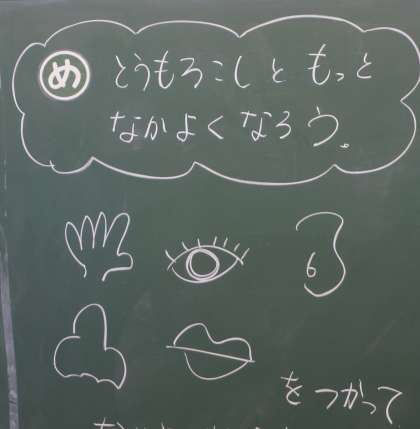 め とうもろこしと もっと
なかよくなろう。
をつかって